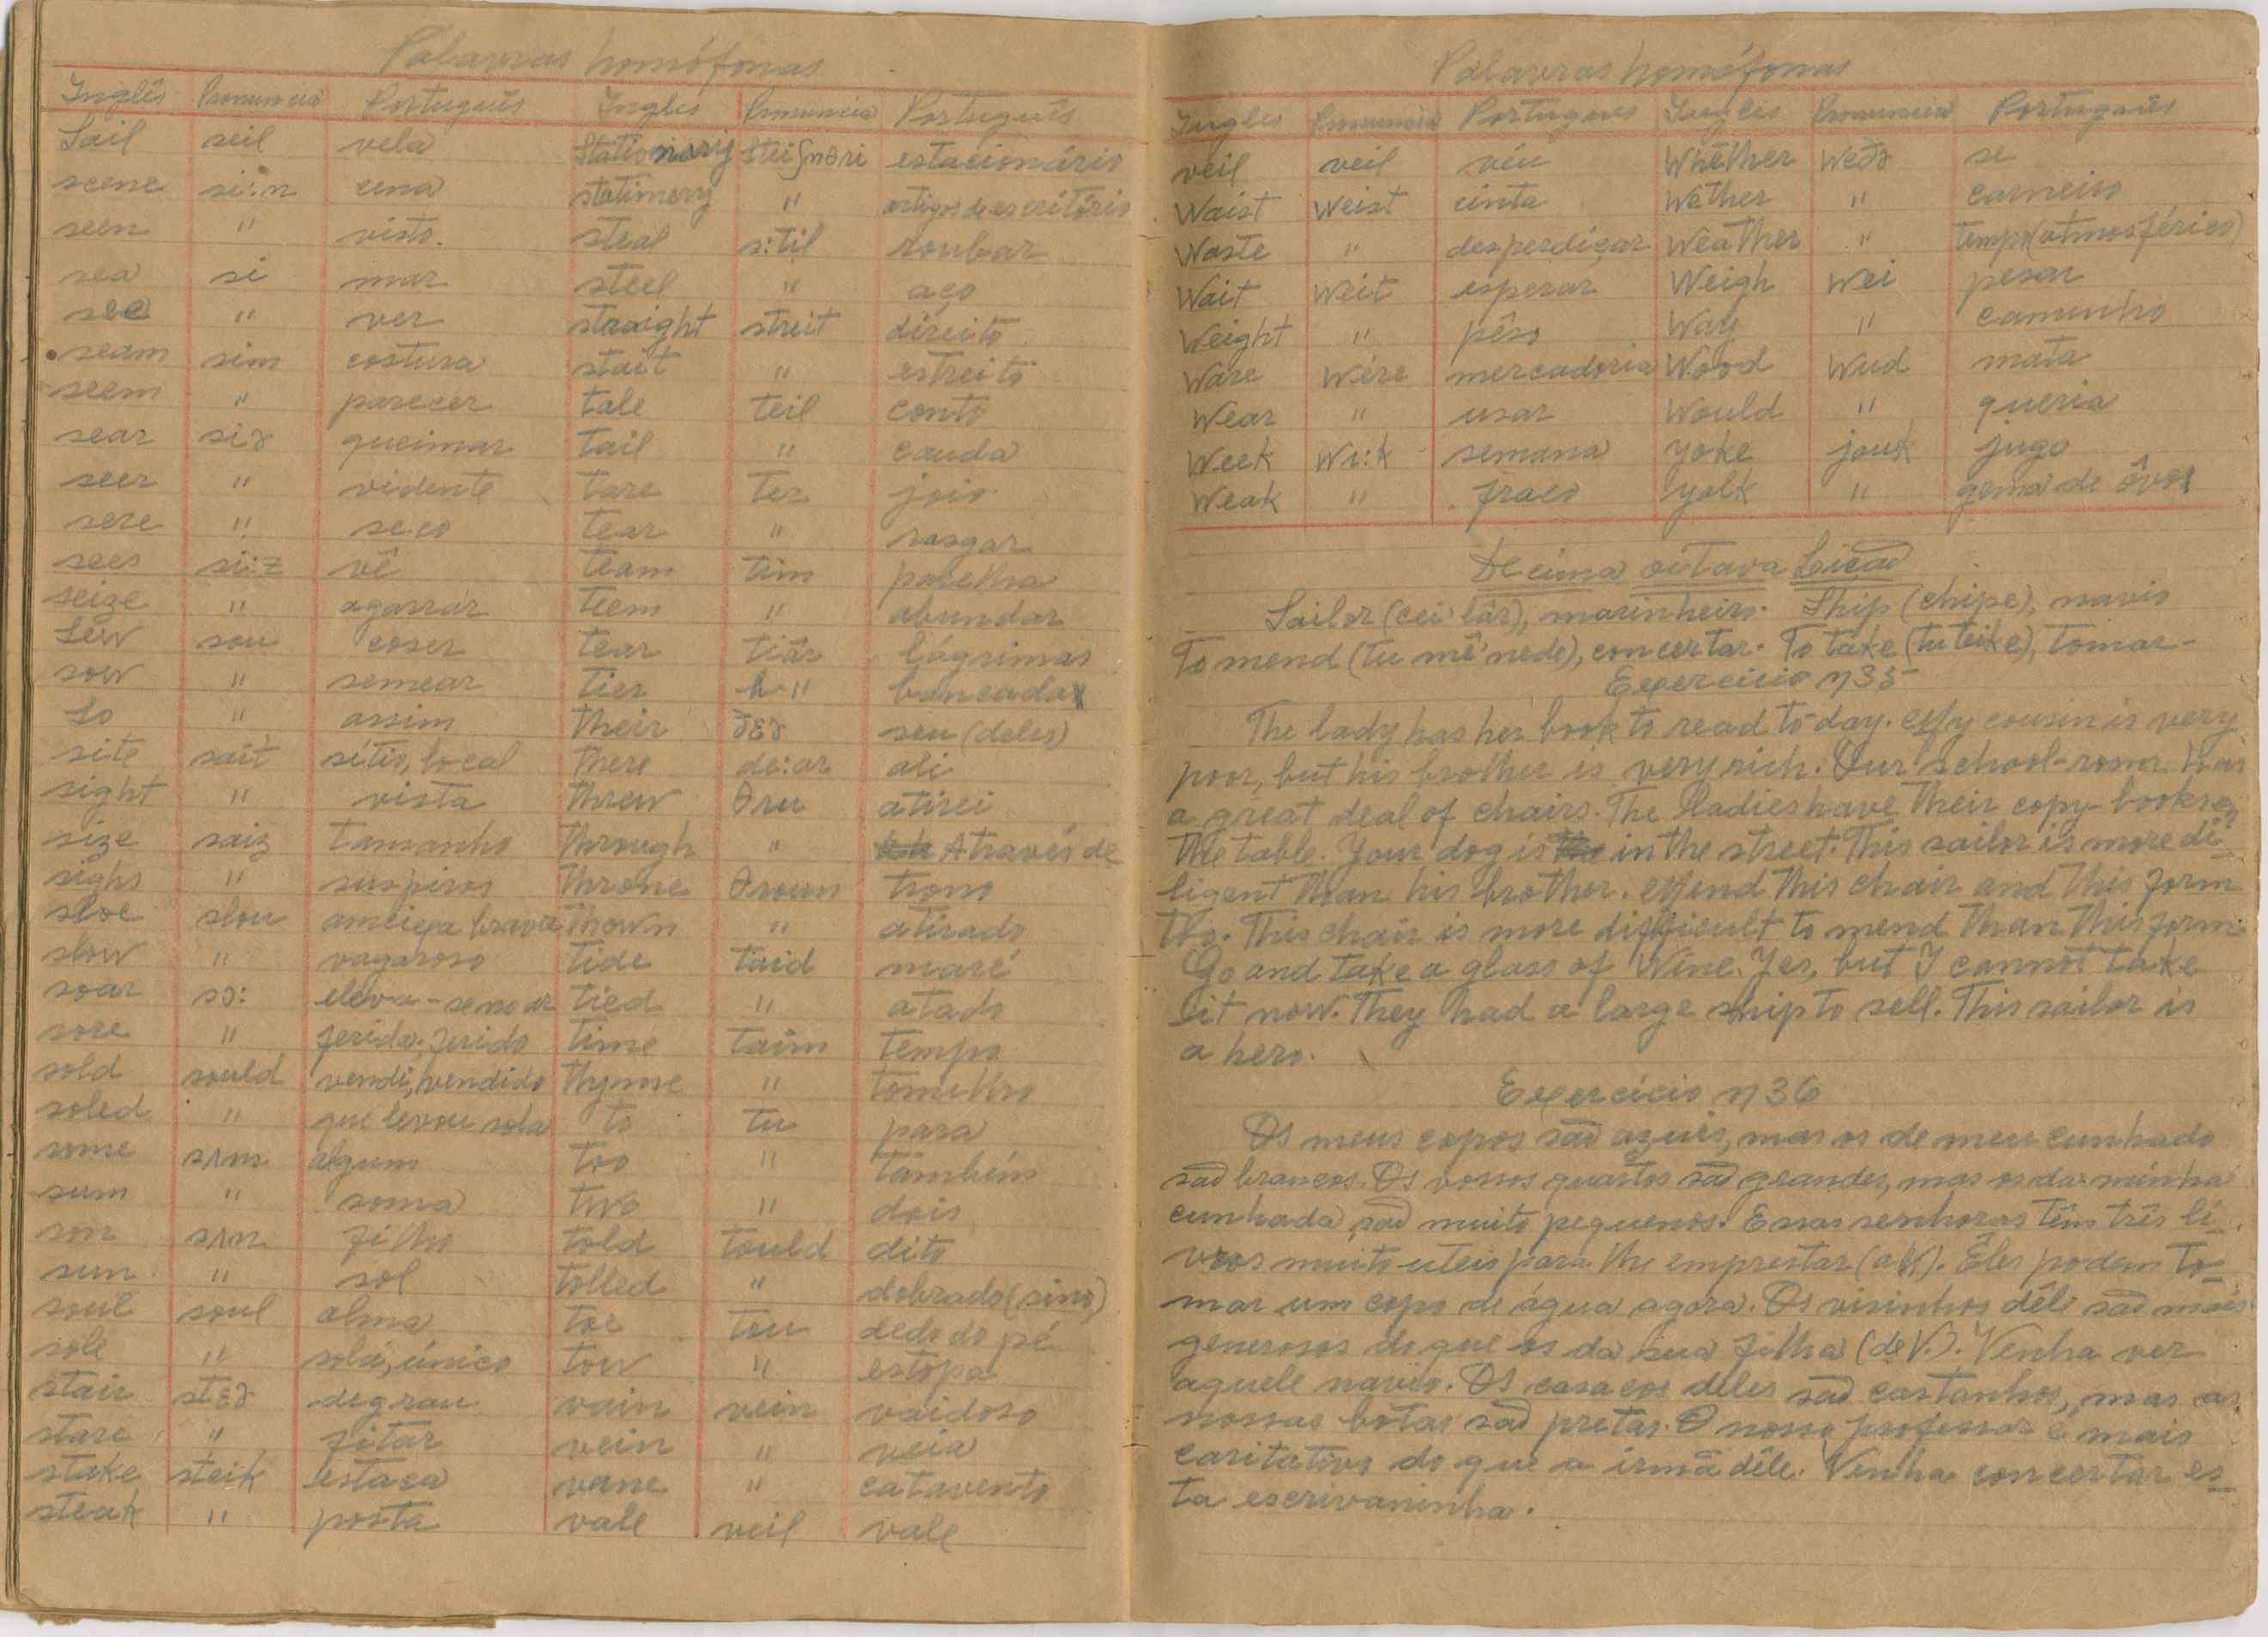 Palavras homófonas
Inglês Pronuncia Português Ingles Pronuncia Português
Sail seil vela Stationary steiʃnəri estacionário
scene si:n cena stationery " artigos de escritório
seen " visto. steal s:til roubar
sea si mar steel " aço
see " ver straight streit direito
seam sim costura stait " estreito
seem " parecer tale teil conto
sear siə queimar tail " cauda
seer " vidente tare ter joio
sere " seco tear " rasgar
sees si:z vê team tim parelha
seize " agarrar teem " abundar
Sew sou coser tear tiár lágrimas
sow " semear tier " bancada
So " assim their ðɛə seu (deles)
site sait sítio, local there de:ar ali
sight " vista threw θru atirei
size saiz tamanho through " Através de
sighs " suspiros throne θroun trono
sloe slou ameixa brava thown " atirado
slow " vagaroso tide taid maré
soar sɔ: eleva-se no ar tied " atado
sore " ferida, ferido time taim tempo
sold sould vendi, vendido thyme " tomilho
soled " que levou sola to tu para
some sʌm algum too " também
sum " soma two " dois
son sʌn filho told tould dito
sun " sol tolled " dobrado (sino)
soul soul alma toe tou dedo do pé
sole " sola, único tow " estopa
stair stɛə degrau vain vein vaidoso
stare " fitar vein " veia
stake steik estaca vane " catavento
steak " posta vale veil vale
Palavras homófonas
Ingles Pronuncia Portugues Ingles Pronuncia Português
veil veil véu Whether weðə se
Waist weist cinta Wether " carneiro
Waste " desperdiçar Weather " tempo (atmosférico)
Wait weit esperar Weigh wei pesar
Weight " pêso Way " caminho
Ware wére mercadoria Wood wud mata
Wear " usar Would " queria
Week wi:k semana yoke jouk jugo
Weak " fraco yolk " gema de ôvo
Décima oitava Lição
Sailor (cei'lár), marinheiro. Ship (chipe), navio
To mend (tu mê'nede), concertar. To take (tu teike), tomar-
Exercício n 35
The lady has her book to read to-day. My cousin is very
poor, but his brother is very rich. Our school-room has
a great deal of chairs. The ladies have their copy-books on
the table. Your dog is in the street. This sailor is more di-
ligent than his brother. Mend this chair and this form
too. This chair is more difficult to mend than this form.
Go and take a glass of Wine. Yes, but I cannot take
it now. They had a large ship to sell. This sailor is
a hero.
Exercício n 36
Os meus copos são azuis, mas os de meu cunhado
são brancos. Os vossos quartos são grandes, mas os da minha
cunhada são muito pequenos. Essas senhoras têm três li-
vros muito uteis para lhe emprestar (a V.). Êles podem to-
mar um copo de água agora. Os visinhos dêle são mais
generosos do que os da sua filha (de V.). Venha ver
aquele navio. Os casacos dêles são castanhos, mas as
nossas botas são pretas. O nosso professor é mais
caritativo do que a irmã dêle. Venha concertar es-
ta escrivaninha.